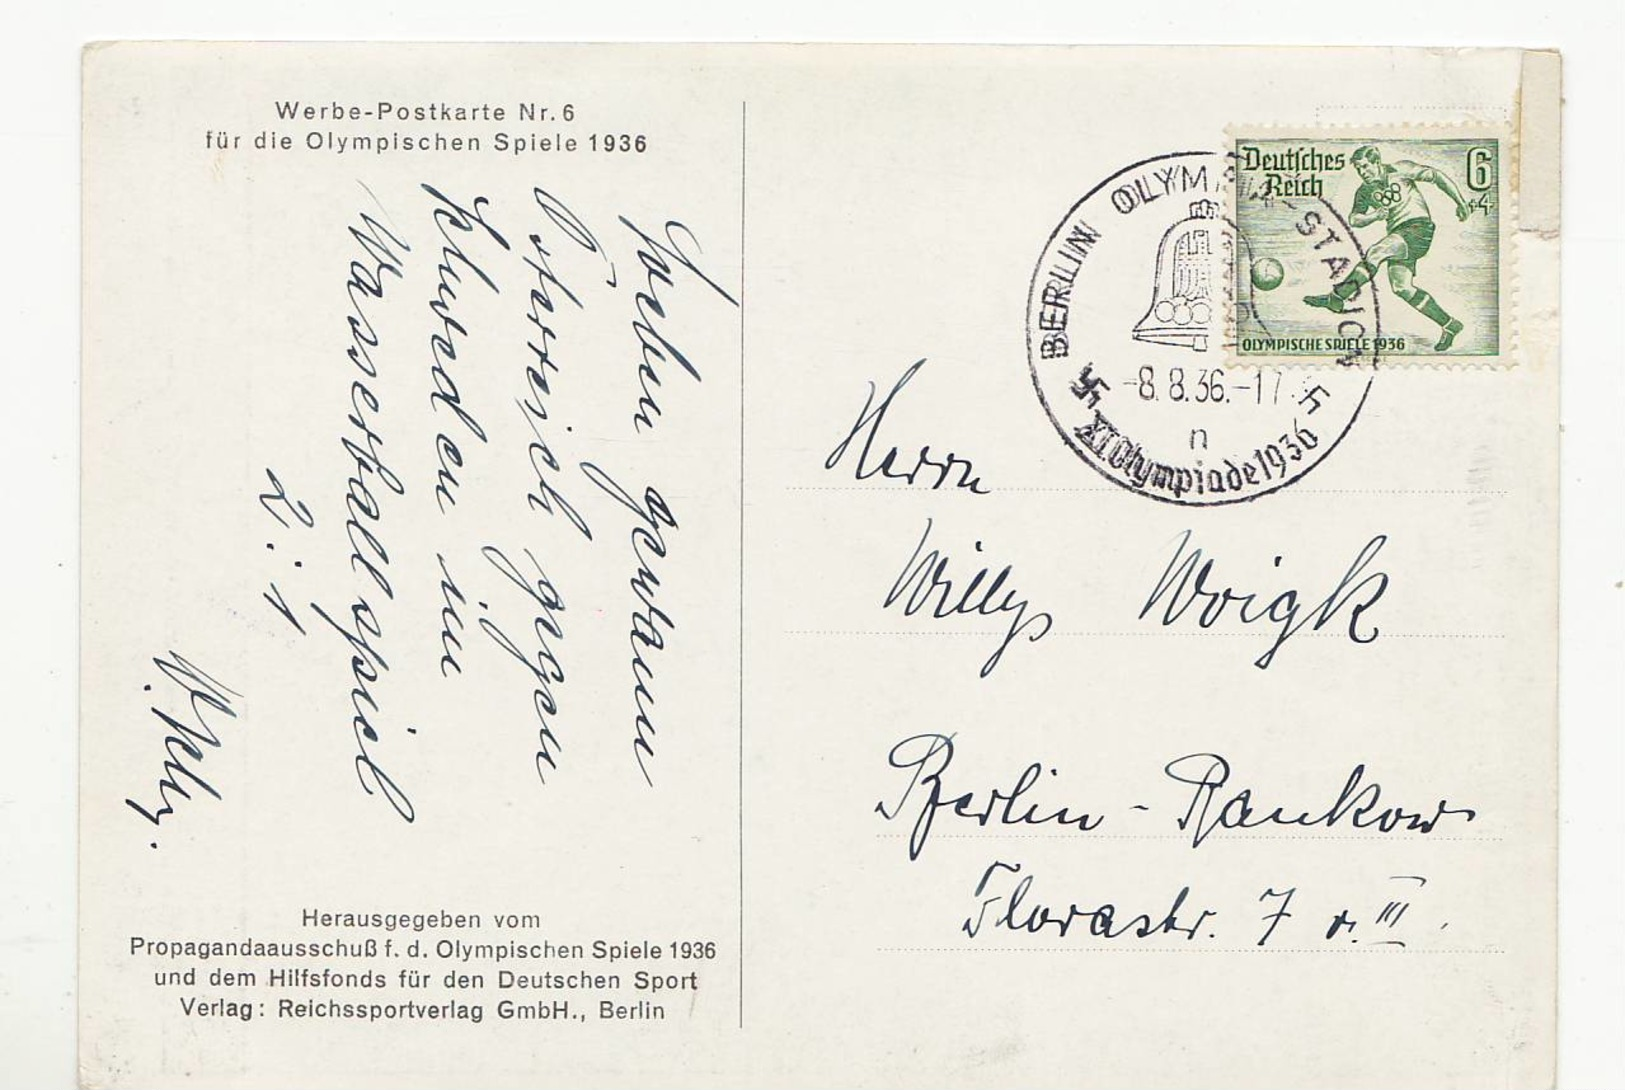 Werbe-Postkarte Nr. 6
für die Olympischen Spiele 1936
Soeben gewann
Österreich gegen
Schweden im
Wasserballspiel
2:1
Herausgegeben vom
Propagandaausschuß f. d. Olympischen Spiele 1936
und dem Hilfsfonds für den Deutschen Sport
Verlag: Reichssportverlag GmbH., Berlin
Deutsches
Reich
6
+4
OLYMPISCHE SPIELE 1936
BERLIN OLYMPIA-STADION
-8.8.36.-17
n
XI. Olympiade 1936
Herrn
Willy Woigk
Berlin-Pankow
Florastr. 7 v. III.